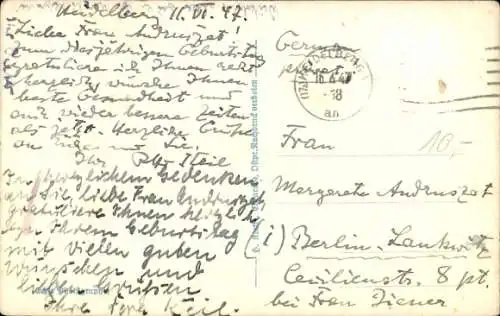 Heidelberg 11. VI. 47.
Liebe Frau Andruszat!
Zum diesjährigen Geburtstag
gratuliere ich Ihnen recht
herzlich, wünsche Ihnen
beste Gesundheit und
auch wieder bessere Zeiten
als jetzt. Herzliche Grüße
an und Sie.
Ihr Keil
In herzlichem Gedenken
an Sie, liebe Frau Andruszat
gratuliere Ihnen herzlich
zu Ihrem Geburtstag
mit vielen guten
Wünschen und
lieben Grüssen
Ihre Keil.
Germany
HEIDELBERG
-18
an
Frau
10,-
Margarete Andruszat
(1) Berlin-Lankwitz
Cecilienstr. 8 pt.
bei Frau Ziener